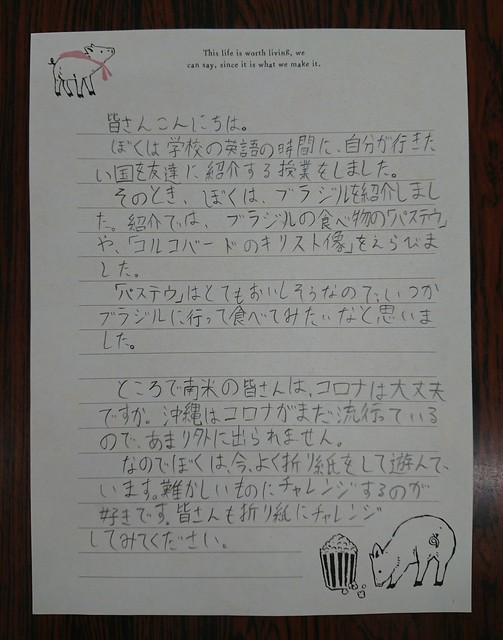 This life is worth living, we
can say, since it is what we make it.
皆さんこんにちは。
ぼくは学校の英語の時間に、自分が行きた
い国を友達に紹介する授業をしました。
そのとき、ぼくは、ブラジルを紹介しまし
た。紹介では、ブラジルの食べ物の「パステウ」
や、「コルコバードのキリスト像」をえらびま
した。
「パステウ」はとてもおいしそうなので、いつか
ブラジルに行って食べてみたいなと思いま
した。
ところで南米の皆さんは、コロナは大丈夫
ですか。沖縄はコロナがまだ流行っている
ので、あまり外に出られません。
なのでぼくは、今、よく折り紙をして遊んで
います。難かしいものにチャレンジするのが
好きです。皆さんも折り紙にチャレンジ
してみてください。